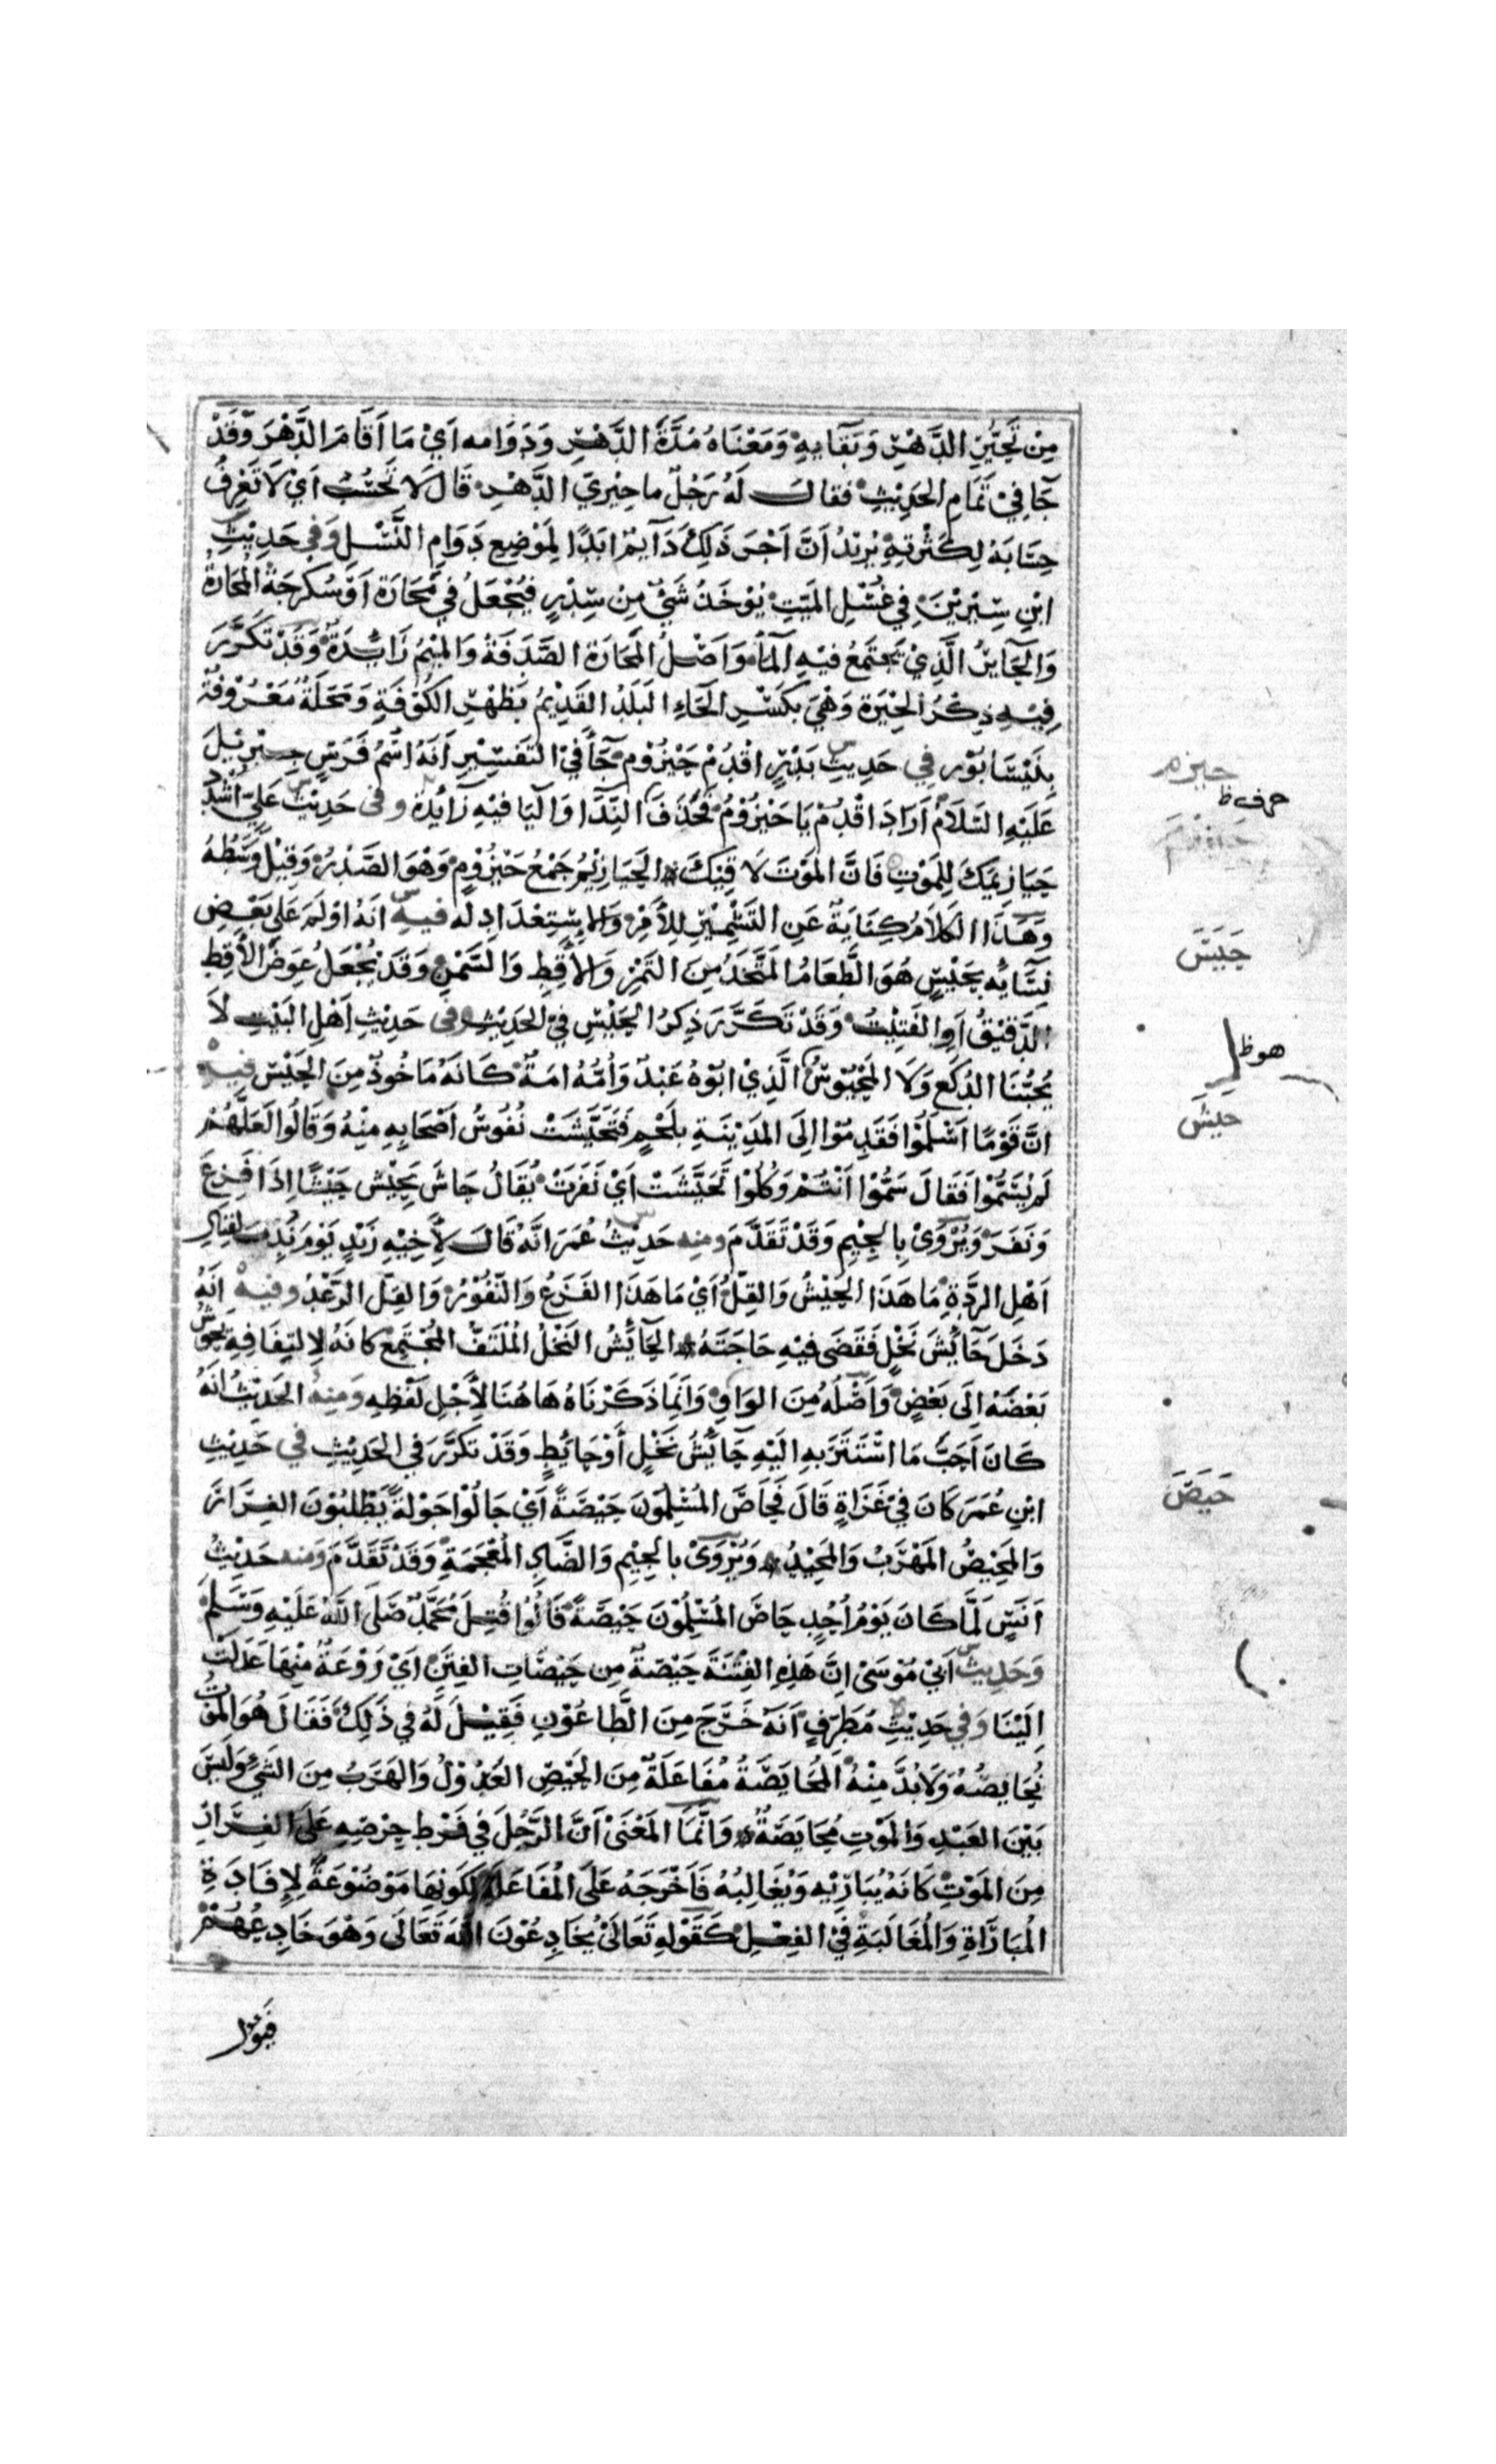 مِنْ تَحَيُّرِ الدَّهْرِ وَبَقَايِهِ وَمَعْنَاهُ مُدَّةَ الدَّهْرِ وَدَوَامه اَيْ مَا اَقَامَ الدَّهْرَ وَقَدْ
جَا فِيْ تَمَامِ الحَدِيْثِ فقالَ لَهُ رَجُلٌ ما حِيْرِيَ الدَّهْرِ قَالَ لَا تَحْسُبُ اَيْ لَا تَعْرِفُ
حِسَابَهُ لِكَثْرَتِهِ يُرِيْدُ اَنَّ اَجْرَ ذَلِكَ دَآيِمٌ اَبَدًا لِمَوْضِعِ دَوَامِ النَّسْلِ وَفِي حَدِيْثِ
ابْنِ سِيْرِيْنَ فِي غُسْلِ المَيِّتِ يُوْخَذُ شَيْ مِنْ سِدْرٍ فَيُجْعَلُ فِي مَحَارَةٍ اَوْ سُكرجَةْ المَحَارةُ
وَالحَايِرُ الَّذِيْ يَجْتَمِعُ فِيْهِ المَآُ وَاَصْلُ المَحَارَةِ الصَّدَفَةُ وَالمِيْمُ زَايِدَةٌ وَقَدْ تَكَرَّرَ
فِيْهِ ذِكْرُ الحِيْرَةِ وَهْيَ بِكَسْرِ الحَاءِ البَلَدُ القَدِيْمُ بِظَهْرِ الكُوْفَةِ وَمَحَلَّةٌ مَعْرُوْفَةٌ
بِنَيْسَابُوْر فِي حَدِيْثِ بَدْرٍ اقْدُمْ حَيْزُوْم جَآَ فِيْ التَّفْسِيْرِ اَنَّهُ اسْمُ فَرَسِ جِبْرِيْلَ
عَلَيْهِ السَّلَامُ اَرَادَ اقْدُمْ يَا حَيْزُوْمُ فَحَذَفَ النِّدَآَ وَاليَا فِيْهِ زَايِدَة وفى حَدِيْثِ عَلِيّ اشْدُدْ
حَيَازِيْمَكَ لِلمَوْتِ فَاِنَّ المَوْتَ لَا قِيْكَ الحَيَازِيْمُ جَمْعُ حَيْزُوْمٍ وَهْوَ الصَّدْرُ وَقِيْلَ وَسْطُهُ
وَهَذَا الكَلَامُ كِنَايَةٌ عَنِ التَّشْمِيْرِ لِلأَمْرِ وَالاِسْتِعْدَادِ لَه فيه اَنَهُ اَوْلَمَ عَلَى بَعْضِ
نِسَايِهِ بِحَيْسٍ هُوَ الطَّعَامُ المُتَّخَذُ مِنَ التَمْرِ وَالأَقِطِ وَالسَّمْنِ وَقَدْ يُجْعَلُ عِوَضَ الأَقِطِ
الدَّقِيْقُ اَوِ الفَتِيْتُ وَقَدْ تَكَرَّرَ ذِكرُ الحَيْسِ فِيْ الحَدِيْثِ وفى حَدِيْثِ اَهْلِ البَيْتِ لَا
يُحِبُّنَا اللُكَعُ وَلَا المَحْيُوْسُ الَّذِيْ اَبُوْهُ عَبْدٌ وَاُمُّهُ اَمَةٌ كَاَنَّهُ مَاخُوذٌ مِنَ الحَيْسِ فيه
اَنَّ قَوْمًا اَسْلَمُوْا فَقَدِمُوْا اِلَى المَدِيْنَةِ بِلَحْمٍ فَتَحَيَّشَتْ نُفُوسُ اَصْحَابِهِ مِنْهُ وَقَالُوا لَعَلَّهُمْ
لَمْ يُسَمُّوْا فَقَالَ سَمُّوْا اَنْتُمْ وَكُلُوْا تَحَيَّشَتْ اَيْ نَفَرَتْ يُقَالُ حَاشَ يَحِيْش حَيْشًا اِذَا فَزِعَ
وَنَفَرَ وَيُرْوَىْ بِالجِيْمِ وَقَدْ تَقَدَّمَ ومنه حَدِيْثُ عُمَرَ اَنَّهُ قَالَ لأَخِيْهِ زَيْدٍ يَوْمَ نُدِبَ لِقِتَالِ
اَهْلِ الرِّدَّةِ مَا هَذَا الحَيْشُ وَالقِلُّ اَيْ مَا هَذَا الفَزَعُ وَالنُّفُوْرُ وَالقِلُّ الرَعْدُ وفيه اَنَّهُ
دَخَلَ حَآئِشَ نَخْلٍ فَقَضَى فِيْهِ حَاجَتَهُ الحَآئِشُ النَّخْلُ المُلْتَفُّ المُجْتَمِعُ كانَهُ لِالتِفَافِهِ يَحُوْشُ
بَعْضَهْ اِلَى بَعْضٍ وَاَصْلُهُ مِنَ الوَاوِ وَاِنَّمَا ذَكَرْنَاهُ هَاهُنَا لأَجْلِ لَفْظِهِ وَمِنهُ الحَدِيْثُ اَنَهُ
كَانَ اَحَبَّ مَا اسْتَتَرَ بِهِ اِلَيْهِ حَآئِشُ نَخْلٍ أَوْ حَايِطٍ وَقَدْ تَكَرَّرَ في الحَدِيْثِ في حَدِيْثِ
ابْنِ عُمَرَ كَانَ فِيْ غَزَاةٍ قَالَ فَحَاصَ المُسْلِمُوْنَ حَيْصَةً اَيْ جَالُوْا جَوْلَةً يَطْلُبُوْنَ الفِرَارَ
وَالمَحِيْصُ المَهْرَبُ وَالمَحِيْدُ وَيُرْوَىْ بِالجِيْمِ وَالضَّادِ المُعْجَمَةِ وَقَدْ تَقَدَّمَ وَمنه حَدِيْثُ
اَنَسٍ لَمَّا كَانَ يَوْمُ اُحُدٍ حَاصَ المُسْلِمُوْنَ حَيْصَةً قَالُوْا قُتِلَ مُحَمَّدٌ صَلَّى اللهُ عَلَيْهِ وَسَلَّمَ
وَحَدِيثُ اَبِيْ مُوْسَىْ اِنَّ هَذِهِ الفِتْنَةَ حَيْصَةٌ مِن حَيْصَاتِ الفِتَنِ اَيْ رَوْعَةٌ مِنْهَا عَدَلَتْ
اِلَيْنَا وَفِي حَدِيْثِ مُطَرِّفٍ اَنَّهُ خَرَجَ مِنَ الطَّاعُوْنِ فَقِيْلَ لَهُ فِي ذَلِكَ فَقَالَ هُوَ المَوْتُ
نُحَايِصُهُ وَلَابُدَّ مِنْهُ المُحَايَصَةُ مُفَاعَلَةٌ مِنَ الحَيْصِ العُدُوْلُ وَالهَرَبُ مِنَ الشَيْ وَلَيْسَ
بَيْنَ العَبْدِ وَالمَوْتِ مُحَايَصَةٌ وَاِنَّمَا المَعْنَىْ اَنَّ الرَّجُلَ فِي فَرْطِ حِرْصِهِ عَلَى الفِرَارِ
مِنَ المَوْتِ كَاَنَهُ يُبَارِيْهِ وَيُغَالِبُهُ فَاَخْرَجَهُ عَلَى المُفَاعَلَةِ لِكَونِهَا مَوْضُوْعَةً لِاِفَادَةِ
المُبَارَاةِ وَالمُغَالَبَةِ فِيْ الفِعْلِ كَقَوْلِهِ تَعَالَىْ يُخَادِعُوْنَ اللهَ تَعَالَى وَهْوَ خَادِعُهُمْ
حيزم
حرف ظ
حَيَسَ
هو ظ
حيشَ
حَيَصَ